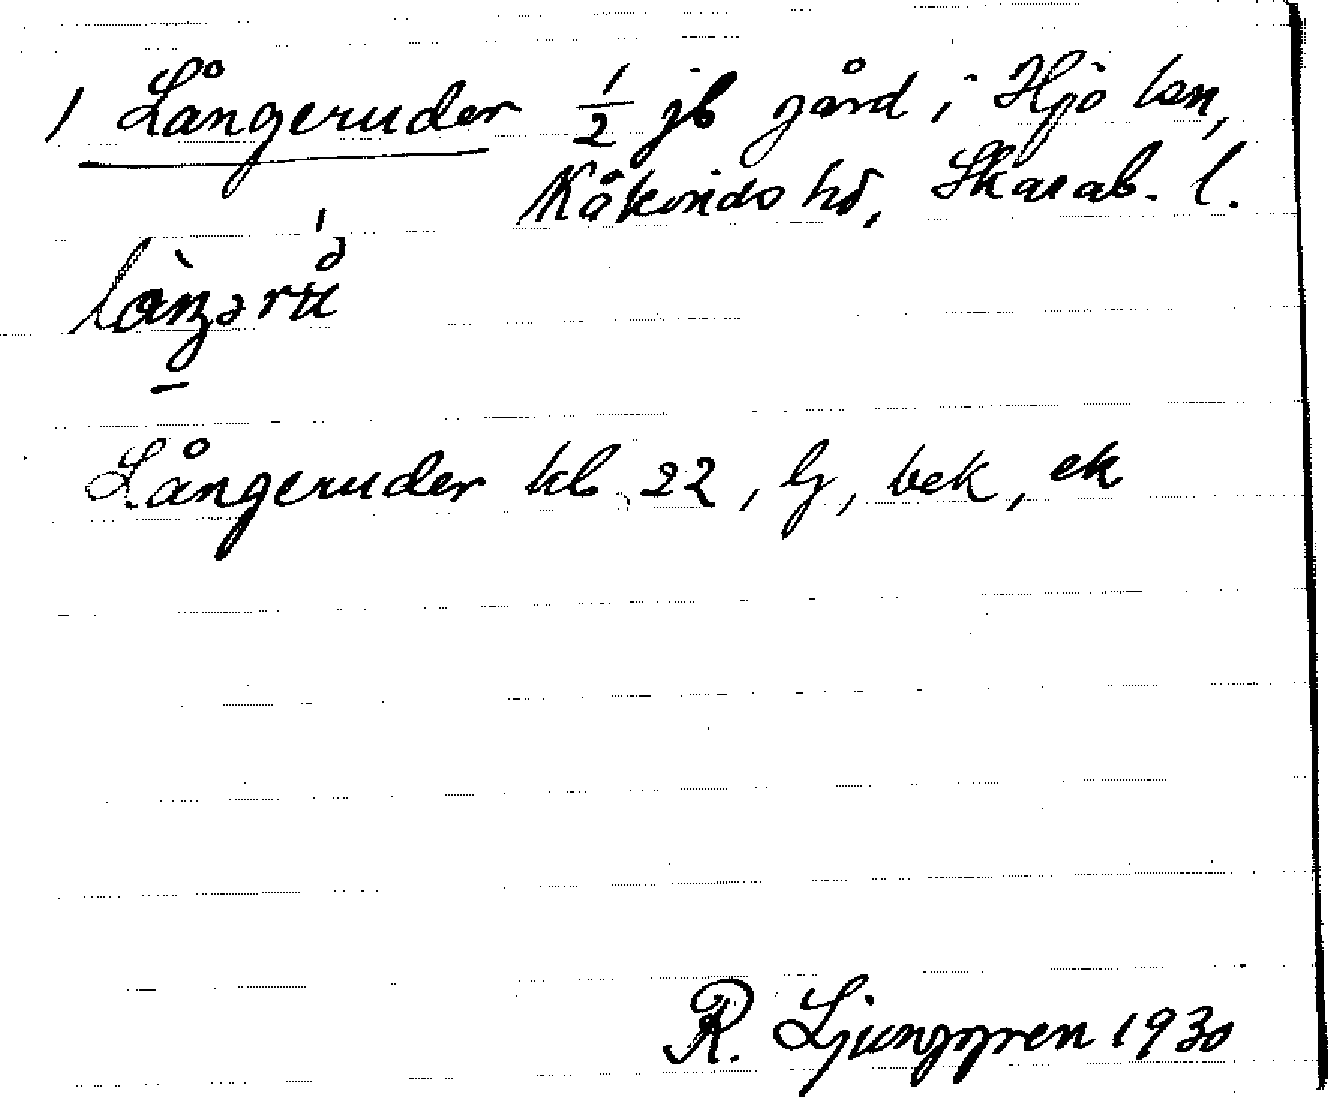 1 Långeruder 1/2 jb gård i Hjo lsn,
Kåkinds hd, Skarab. l.
Långeruder kb 22, lj, bek, ek
R. Ljunggren 1930